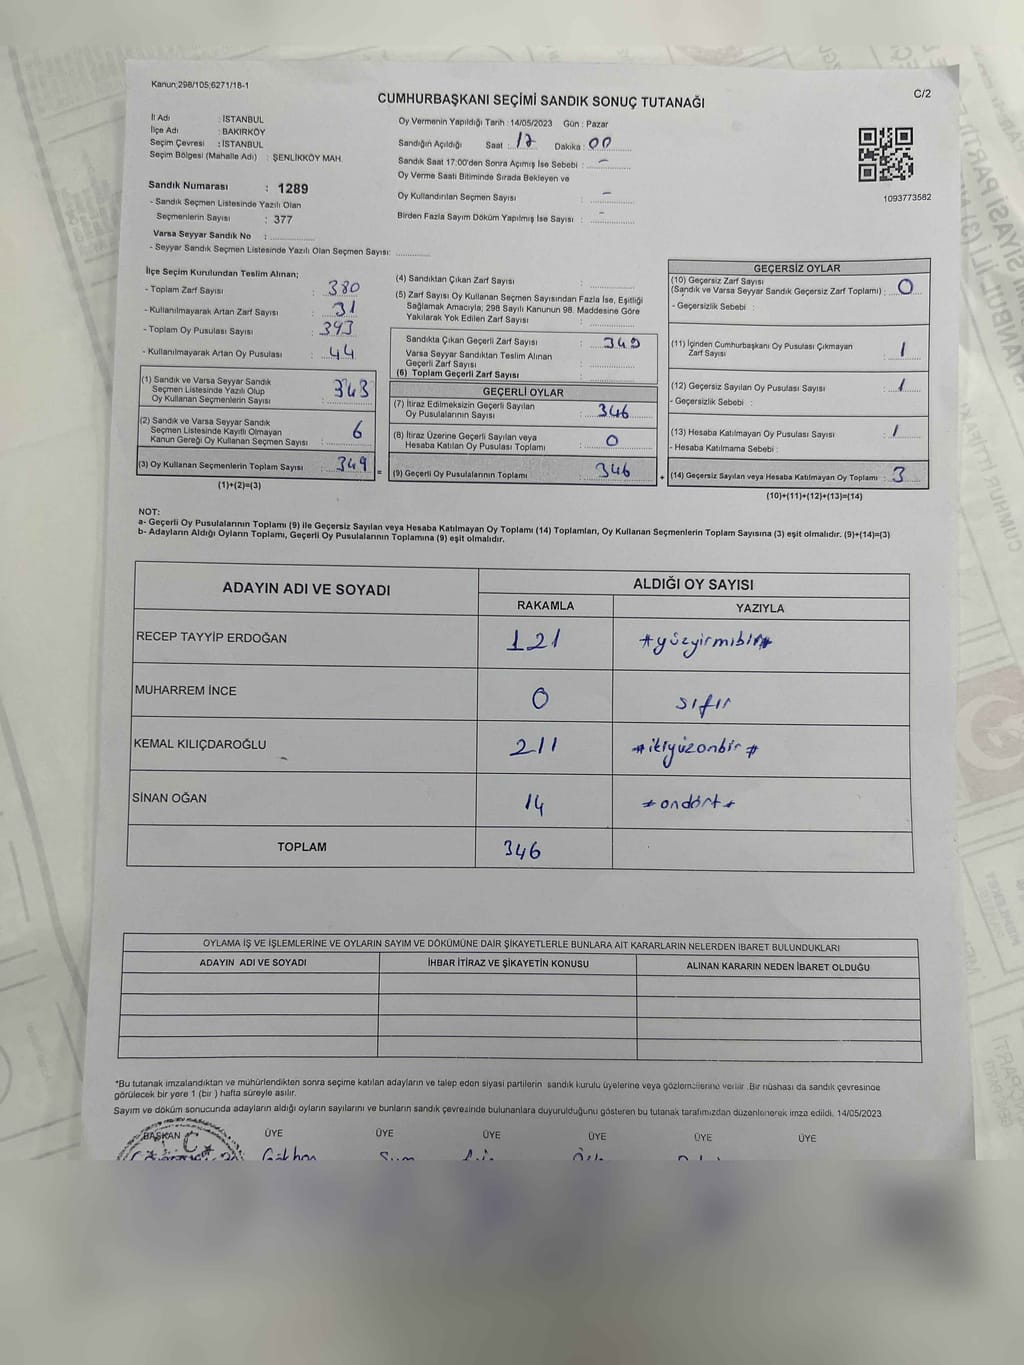 Kanun;298/105;6271/18-1
C/2
CUMHURBAŞKANI SEÇİMİ SANDIK SONUÇ TUTANAĞI
İl Adı : İSTANBUL
İlçe Adı : BAKIRKÖY
Seçim Çevresi : İSTANBUL
Seçim Bölgesi (Mahalle Adı) : ŞENLİKKÖY MAH.
Sandık Numarası : 1289
- Sandık Seçmen Listesinde Yazılı Olan
Seçmenlerin Sayısı : 377
Varsa Seyyar Sandık No :
- Seyyar Sandık Seçmen Listesinde Yazılı Olan Seçmen Sayısı:
Oy Vermenin Yapıldığı Tarih : 14/05/2023 Gün : Pazar
Sandığın Açıldığı Saat : 17 Dakika : 00
Sandık Saat 17:00'den Sonra Açımış İse Sebebi : -
Oy Verme Saati Bitiminde Sırada Bekleyen ve
Oy Kullandırılan Seçmen Sayısı : -
Birden Fazla Sayım Döküm Yapılmış İse Sayısı : -
1093773582
İlçe Seçim Kurulundan Teslim Alınan;
- Toplam Zarf Sayısı : 380
- Kullanılmayarak Artan Zarf Sayısı : 31
- Toplam Oy Pusulası Sayısı : 393
- Kullanılmayarak Artan Oy Pusulası : 44
(1) Sandık ve Varsa Seyyar Sandık
Seçmen Listesinde Yazılı Olup
Oy Kullanan Seçmenlerin Sayısı : 343
(2) Sandık ve Varsa Seyyar Sandık
Seçmen Listesinde Kayıtlı Olmayan
Kanun Gereği Oy Kullanan Seçmen Sayısı : 6
(3) Oy Kullanan Seçmenlerin Toplam Sayısı : 349
(1)+(2)=(3)
=
(4) Sandıktan Çıkan Zarf Sayısı :
(5) Zarf Sayısı Oy Kullanan Seçmen Sayısından Fazla İse, Eşitliği
Sağlamak Amacıyla, 298 Sayılı Kanunun 98. Maddesine Göre
Yakılarak Yok Edilen Zarf Sayısı :
Sandıkta Çıkan Geçerli Zarf Sayısı : 349
Varsa Seyyar Sandıktan Teslim Alınan
Geçerli Zarf Sayısı :
(6) Toplam Geçerli Zarf Sayısı :
GEÇERLİ OYLAR
(7) İtiraz Edilmeksizin Geçerli Sayılan
Oy Pusulalarının Sayısı : 346
(8) İtiraz Üzerine Geçerli Sayılan veya
Hesaba Katılan Oy Pusulası Toplamı : 0
(9) Geçerli Oy Pusulalarının Toplamı : 346
+
GEÇERSİZ OYLAR
(10) Geçersiz Zarf Sayısı
(Sandık ve Varsa Seyyar Sandık Geçersiz Zarf Toplamı) : 0
- Geçersizlik Sebebi :
(11) İçinden Cumhurbaşkanı Oy Pusulası Çıkmayan
Zarf Sayısı : 1
(12) Geçersiz Sayılan Oy Pusulası Sayısı : 1
- Geçersizlik Sebebi :
(13) Hesaba Katılmayan Oy Pusulası Sayısı : 1
- Hesaba Katılmama Sebebi :
(14) Geçersiz Sayılan veya Hesaba Katılmayan Oy Toplamı : 3
(10)+(11)+(12)+(13)=(14)
NOT:
a- Geçerli Oy Pusulalarının Toplamı (9) ile Geçersiz Sayılan veya Hesaba Katılmayan Oy Toplamı (14) Toplamları, Oy Kullanan Seçmenlerin Toplam Sayısına (3) eşit olmalıdır. (9)+(14)=(3)
b- Adayların Aldığı Oyların Toplamı, Geçerli Oy Pusulalarının Toplamına (9) eşit olmalıdır.
ADAYIN ADI VE SOYADI ALDIĞI OY SAYISI
RAKAMLA YAZIYLA
RECEP TAYYİP ERDOĞAN 121 #yüzyirmibir#
MUHARREM İNCE 0 sıfır
KEMAL KILIÇDAROĞLU 211 #ikiyüzonbir#
SİNAN OĞAN 14 #ondört#
TOPLAM 346
OYLAMA İŞ VE İŞLEMLERİNE VE OYLARIN SAYIM VE DÖKÜMÜNE DAİR ŞİKAYETLERLE BUNLARA AİT KARARLARIN NELERDEN İBARET BULUNDUKLARI
ADAYIN ADI VE SOYADI İHBAR İTİRAZ VE ŞİKAYETİN KONUSU ALINAN KARARIN NEDEN İBARET OLDUĞU
*Bu tutanak imzalandıktan ve mühürlendikten sonra seçime katılan adayların ve talep eden siyasi partilerin sandık kurulu üyelerine veya gözlemcilerine verilir .Bir nüshası da sandık çevresinde
görülecek bir yere 1 (bir ) hafta süreyle asılır.
Sayım ve döküm sonucunda adayların aldığı oyların sayılarını ve bunların sandık çevresinde bulunanlara duyurulduğunu gösteren bu tutanak tarafımızdan düzenlenerek imza edildi. 14/05/2023
BAŞKAN ÜYE ÜYE ÜYE ÜYE ÜYE ÜYE
Gökhan